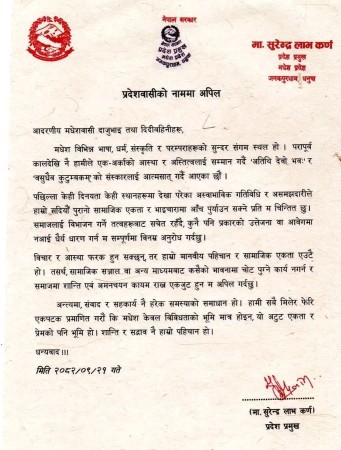 नेपाल सरकार
प्रदेश प्रमुख
मधेश प्रदेश
जनकपुरधाम, धनुषा
मा. सुरेन्द्र लाभ कर्ण
प्रदेश प्रमुख
मधेश प्रदेश
जनकपुरधाम, धनुषा
प्रदेशवासीको नाममा अपिल
आदरणीय मधेशवासी दाजुभाइ तथा दिदीवहिनीहरू,
मधेश विभिन्न भाषा, धर्म, संस्कृति र परम्पराहरूको सुन्दर संगम स्थल हो । परापूर्व
कालदेखि नै हामीले एक-अर्काको आस्था र अस्तित्वलाई सम्मान गर्दै 'अतिथि देवो भवः' र
'वसुधैव कुटुम्बकम्' को संस्कारलाई आत्मसात् गर्दै आएका छौं ।
पछिल्ला केही दिनयता केही स्थानहरूमा देखा परेका अस्वाभाविक गतिविधि र असमझदारीले
हाम्रो सदियौं पुरानो सामाजिक एकता र भाइचारामा आँच पुर्याउन सक्ने प्रति म चिन्तित छु ।
समाजलाई विभाजन गर्ने तत्वहरूबाट सचेत रहँदै, कुनै पनि प्रकारको उत्तेजना वा आवेगमा
नआई धैर्य धारण गर्न म सम्पूर्णमा विनम्र अनुरोध गर्दछु ।
विचार र आस्था फरक हुन सक्छन्, तर हाम्रो मानवीय पहिचान र सामाजिक एकता एउटै
हो । तसर्थ, सामाजिक सञ्जाल वा अन्य माध्यमबाट कसैको भावनामा चोट पुग्ने कार्य नगर्न र
समाजमा शान्ति एवं अमनचयन कायम राख्न एकजुट हुन म अपिल गर्दछु ।
अन्त्यमा, संवाद र सहकार्य नै हरेक समस्याको समाधान हो । हामी सबै मिलेर फेरि
एकपटक प्रमाणित गरौं कि मधेश केवल विविधताको भूमि मात्र होइन, यो अटुट एकता र
प्रेमको पनि भूमि हो । शान्ति र सद्भाव नै हाम्रो पहिचान हो ।
धन्यवाद !!!
मिति २०८२/०९/२१ गते
(मा. सुरेन्द्र लाभ कर्ण)
प्रदेश प्रमुख